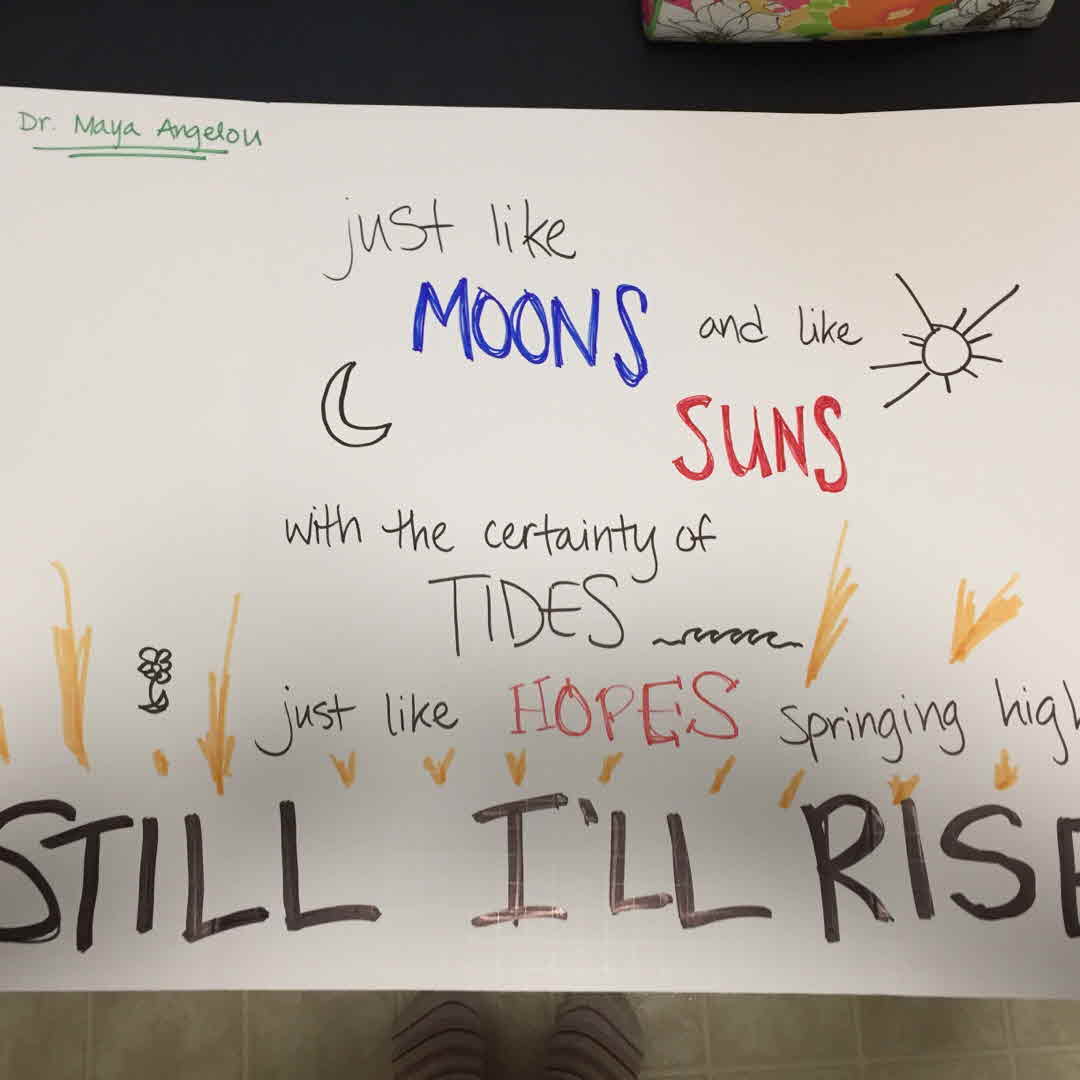 Dr. Maya Angelou
just like
MOONS and like
SUNS
with the certainty of
TIDES
just like HOPES springing high
STILL I'LL RISE